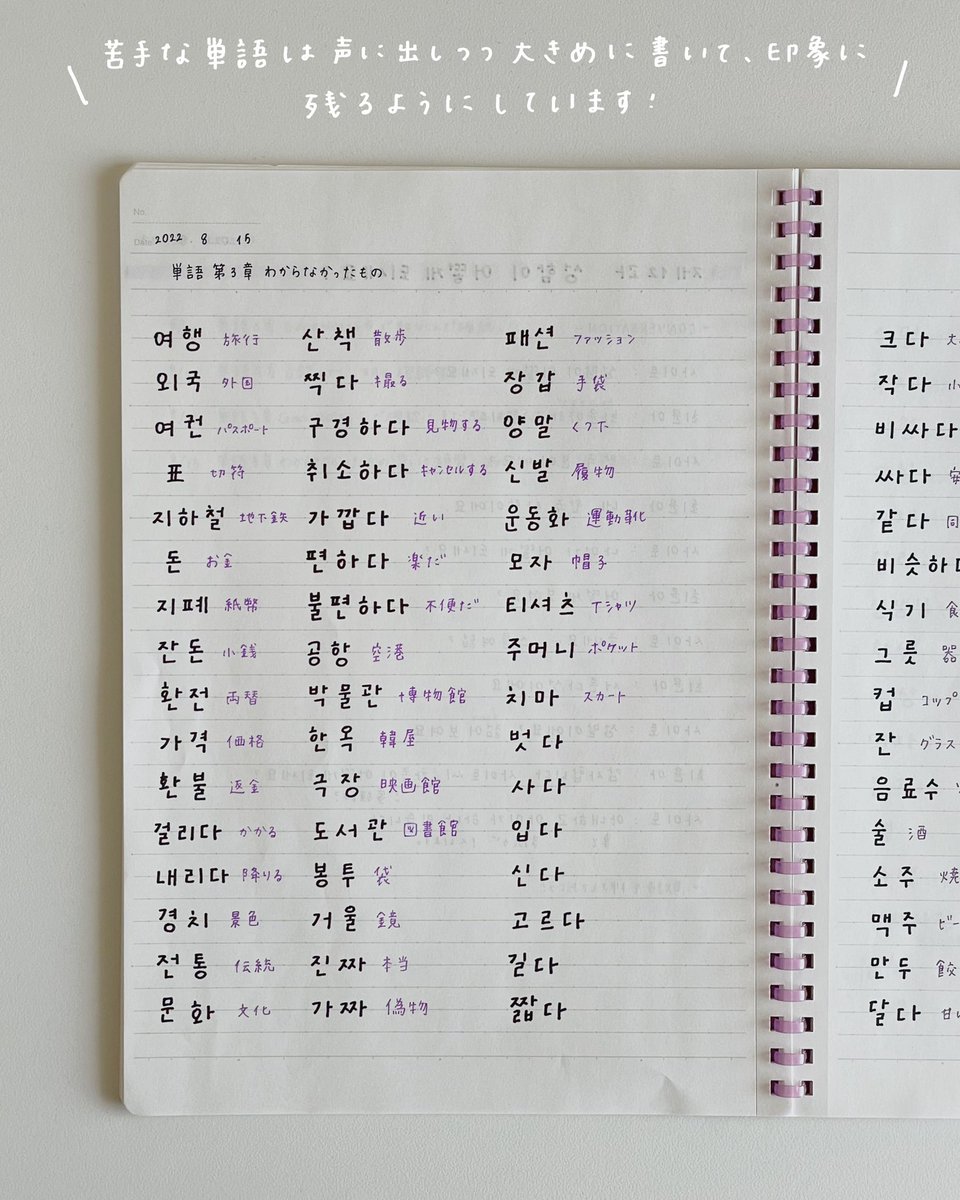 苦手な単語は声に出しつつ大きめに書いて、印象に
残るようにしています!
No.
Date 2022. 8 15
単語 第3章 わからなかったもの
여행 旅行 산책 散歩 패션 ファッション
외국 外国 찍다 撮る 장갑 手袋
여권 パスポート 구경하다 見物する 양말 くつ下
표 切符 취소하다 キャンセルする 신발 履物
지하철 地下鉄 가깝다 近い 운동화 運動靴
돈 お金 편하다 楽だ 모자 帽子
지폐 紙幣 불편하다 不便だ 티셔츠 Tシャツ
잔돈 小銭 공항 空港 주머니 ポケット
환전 両替 박물관 博物館 치마 スカート
가격 価格 한옥 韓屋 벗다
환불 返金 극장 映画館 사다
걸리다 かかる 도서관 図書館 입다
내리다 降りる 봉투 袋 신다
경치 景色 거울 鏡 고르다
전통 伝統 진짜 本当 길다
문화 文化 가짜 偽物 짧다
크다
작다
비싸다
싸다
같다 同
비슷하다
식기 食
그릇 器
컵 コップ
잔 グラス
음료수
술 酒
소주 焼
맥주 ビー
만두 餃
달다 甘い